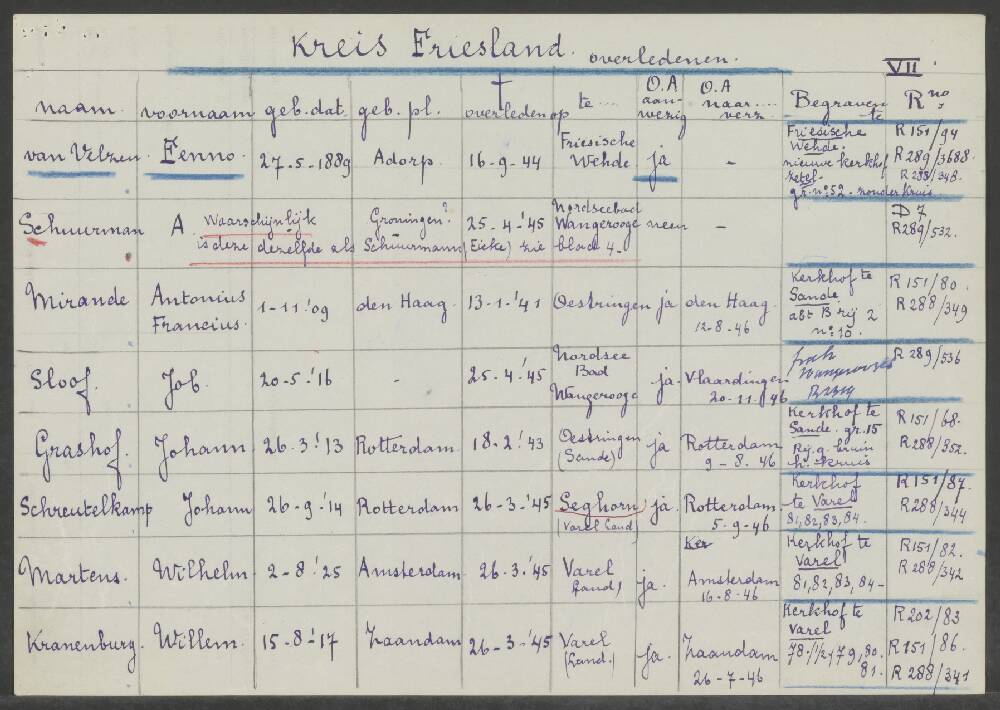 Kreis Friesland. overledenen.
VII
naam. voornaam geb.dat. geb.pl. † overleden op te... O.A aanwezig O.A naar.... verz. Begraven te R nos
van Velzen. Fenno. 27-5-1889 Adorp. 16-9-44 Friesische Wehde ja - Friesische Wehde. nieuwe kerkhof zetel- gr. no. 52- zonder kruis R151/94 R289/3688. R288/348.
Schuurman A Waarschijnlijk Groningen? 25-4-'45 Nordseebad Wangerooge neen - D7 R289/532.
is deze dezelfde als Schuurmann (Eieke) zie blad 4-
Mirande Antonius Francius. 1-11-'09 den Haag. 13-1-'41 Oestringen ja den Haag. 12-8-46 Kerkhof te Sande abt B rij 2 no: 10. R151/80. R288/349
Sloof. Job. 20-5-'16 - 25-4-'45 Nordsee Bad Wangerooge ja. Vlaardingen 20-11-46 R289/536
Grashof. Johann 26-3-'13 Rotterdam 18-2-'43 Oestringen (Sande) ja Rotterdam 9-8-46 Kerkhof te Sande. gr.15 Rij.g. bruin h. kruis R151/68. R288/352.
Schreutelkamp Johann 26-9-'14 Rotterdam 26-3-'45 Seghorn (Varel Land) ja. Rotterdam 5-9-46 Kerkhof te Varel 81,82,83,84. R151/87. R288/344
Martens. Wilhelm 2-8-'25 Amsterdam. 26-3-'45 Varel (Land) ja. Ker Amsterdam 16-8-46 Kerkhof te Varel 81,82,83,84- R151/82. R288/342
Kranenburg. Willem. 15-8-'17 Zaandam 26-3-'45 Varel (Land.) ja. Zaandam 26-7-46 Kerkhof te Varel 78./1/2 y 79,80. 81. R202/83 R151/86. R288/341